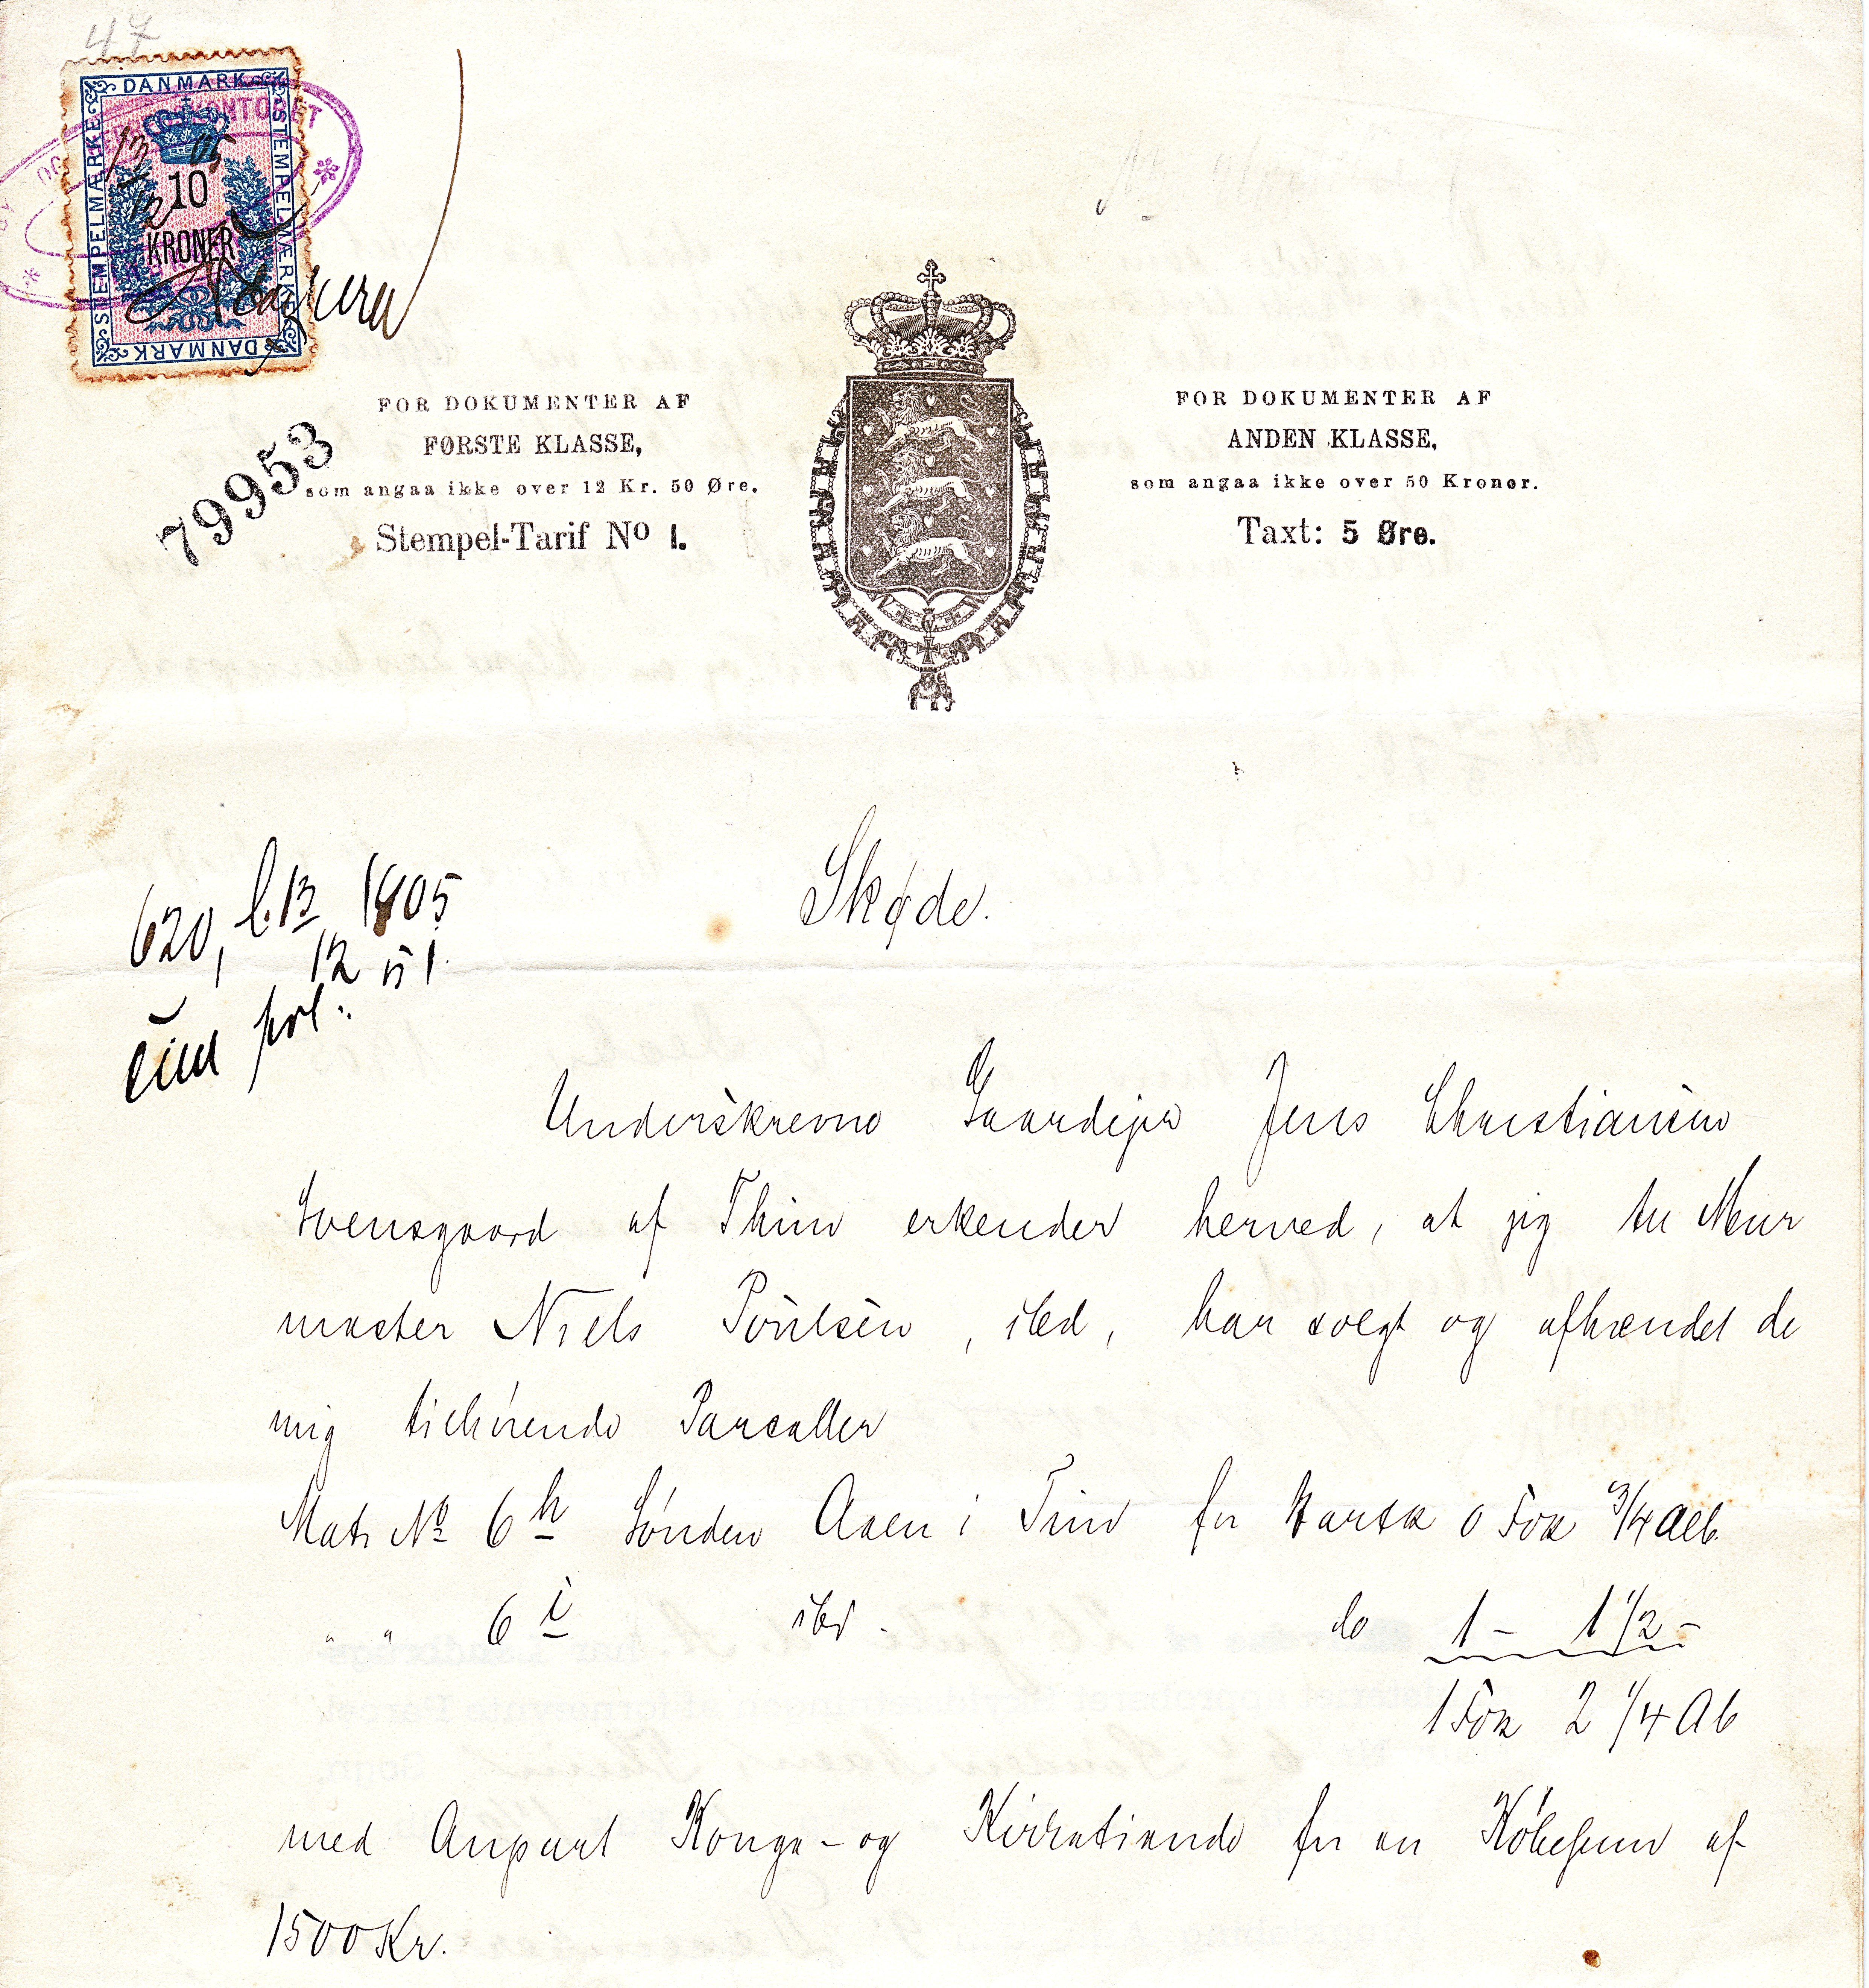 47
DANMARK
STEMPELMÆRKE
STEMPELMÆRKE
DANMARK
13/12 05
10
KRONER
79953
FOR DOKUMENTER AF
FØRSTE KLASSE,
som angaa ikke over 12 Kr. 50 Øre.
Stempel-Tarif No 1.
FOR DOKUMENTER AF
ANDEN KLASSE,
som angaa ikke over 50 Kroner.
Taxt: 5 Øre.
620, 13/12 1905
Skøde.
Underskrevne Gaardejer Jens Christiansen
Svensgaard af Thim erkender herved, at jeg til Mur
mester Niels Poulsen, ibd, har solgt og afhændet de
mig tilhørende Parceller
Matr No 6h Sønden Aaen i Tim for Hartk 0 Fdk 3/4 Alb.
" " 6i ibd. do 1 - 1 1/2 -
1 Fdk 2 1/4 Alb
med Anpart Konge- og Kirketiende for en Købesum af
1500 Kr.